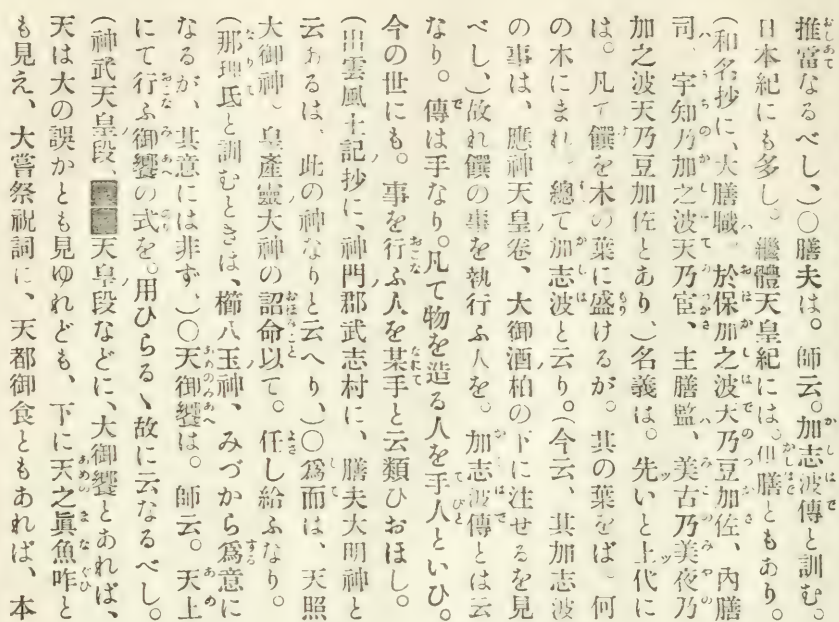 推當なるべし、)〇膳夫は。師云。加志波傳と訓む。
日本紀にも多し。繼體天皇紀には。但膳ともあり。
(和名抄に、大膳職、於保加之波天乃豆加佐、內膳
司、宇知乃加之波天乃宦、主膳監、美古乃美夜乃
加之波天乃豆加佐とあり、)名義は。先いと上代に
は。凡て饌を木の葉に盛けるが。其の葉をば、何
の木にまれ、總て加志波と云り。(今云、其加志波
の事は、應神天皇卷、大御酒柏の下に注せるを見
べし、)故れ饌の事を執行ふ人を。加志波傳とは云
なり。傳は手なり。凡て物を造る人を手人といひ。
今の世にも。事を行ふ人を某手と云類ひおほし。
(出雲風土記抄に、神門郡武志村に、膳夫大明神と
云あるは、此の神なりと云へり、)〇爲而は、天照
大御神、皇產靈大神の詔命以て。任し給ふなり。
(那理氐と訓むときは、櫛八玉神、みづから爲意に
なるが、其意には非ず、)〇天御饗は。師云。天上
にて行ふ御饗の式を。用ひらるゝ故に云なるべし。
(神武天皇段、天皇段などに、大御饗とあれば、
天は大の誤かとも見ゆれども、下に天之眞魚咋と
も見え、大嘗祭祝詞に、天都御食ともあれば、本